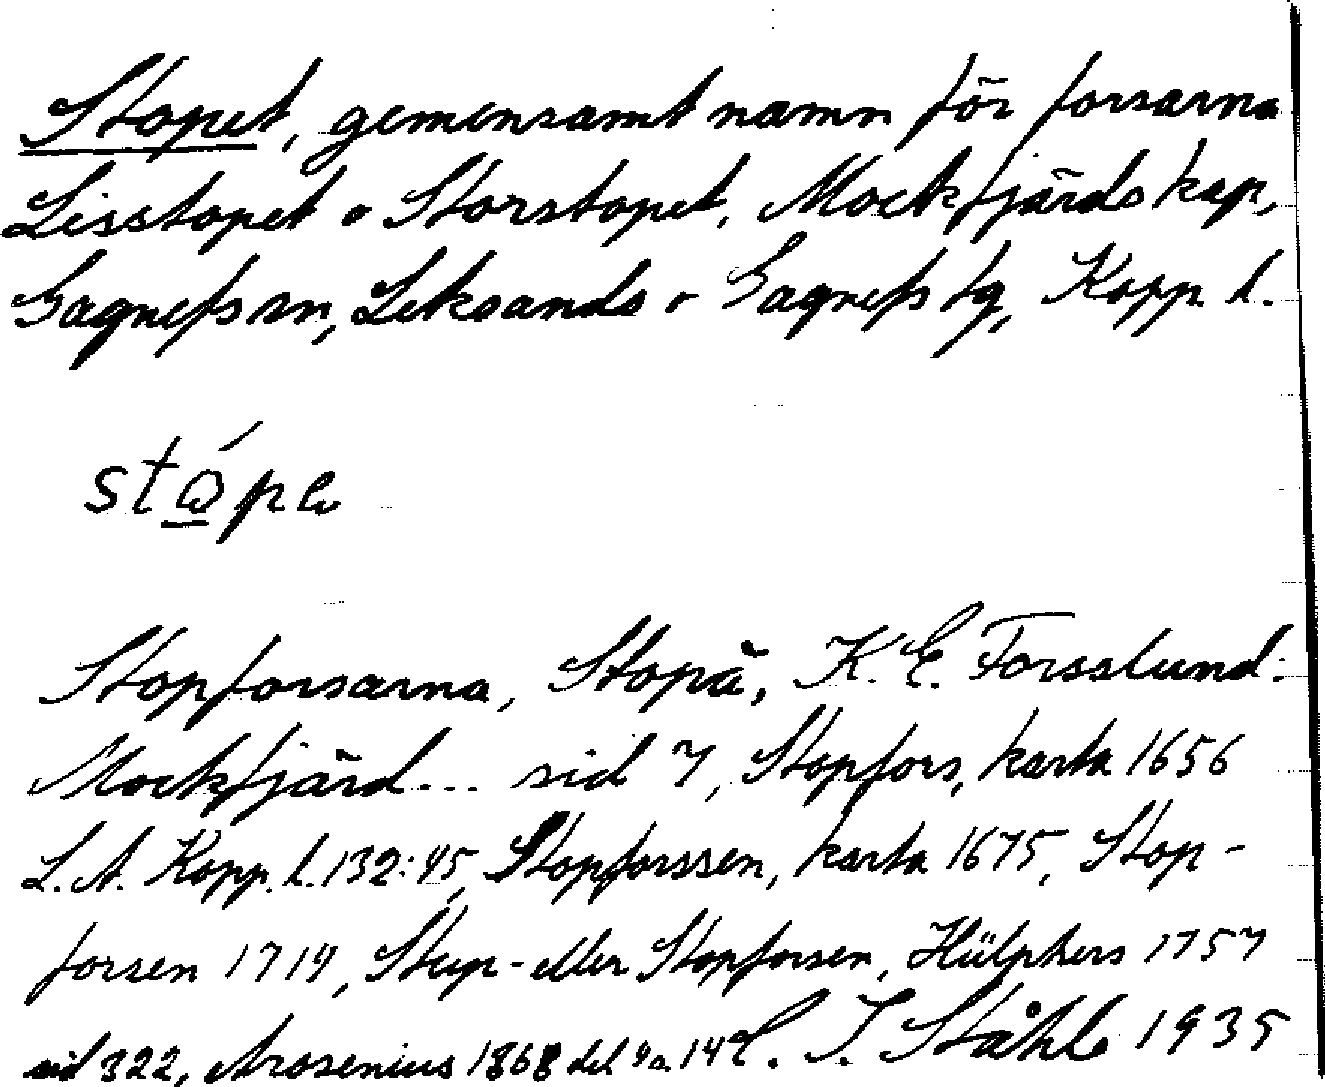 Stopet, gemensamt namn för forsarna
Lisstopet o Storstopet, Mockfjärds kap,
Gagnefs sn, Leksands o Gagnefs tg, Kopp l.
Stopforsarna, Stopä, K. E. Forsslund:
Mockfjärd... sid 7, Stopfors, karta 1656
L. A. Kopp. l. 132:45, Stopforssen, karta 1675, Stop-
forsen 1719, Stup- eller Stopforsen, Hülphers 1757
sid 322, Arosenius 1868 del
J. Ståhle 1935